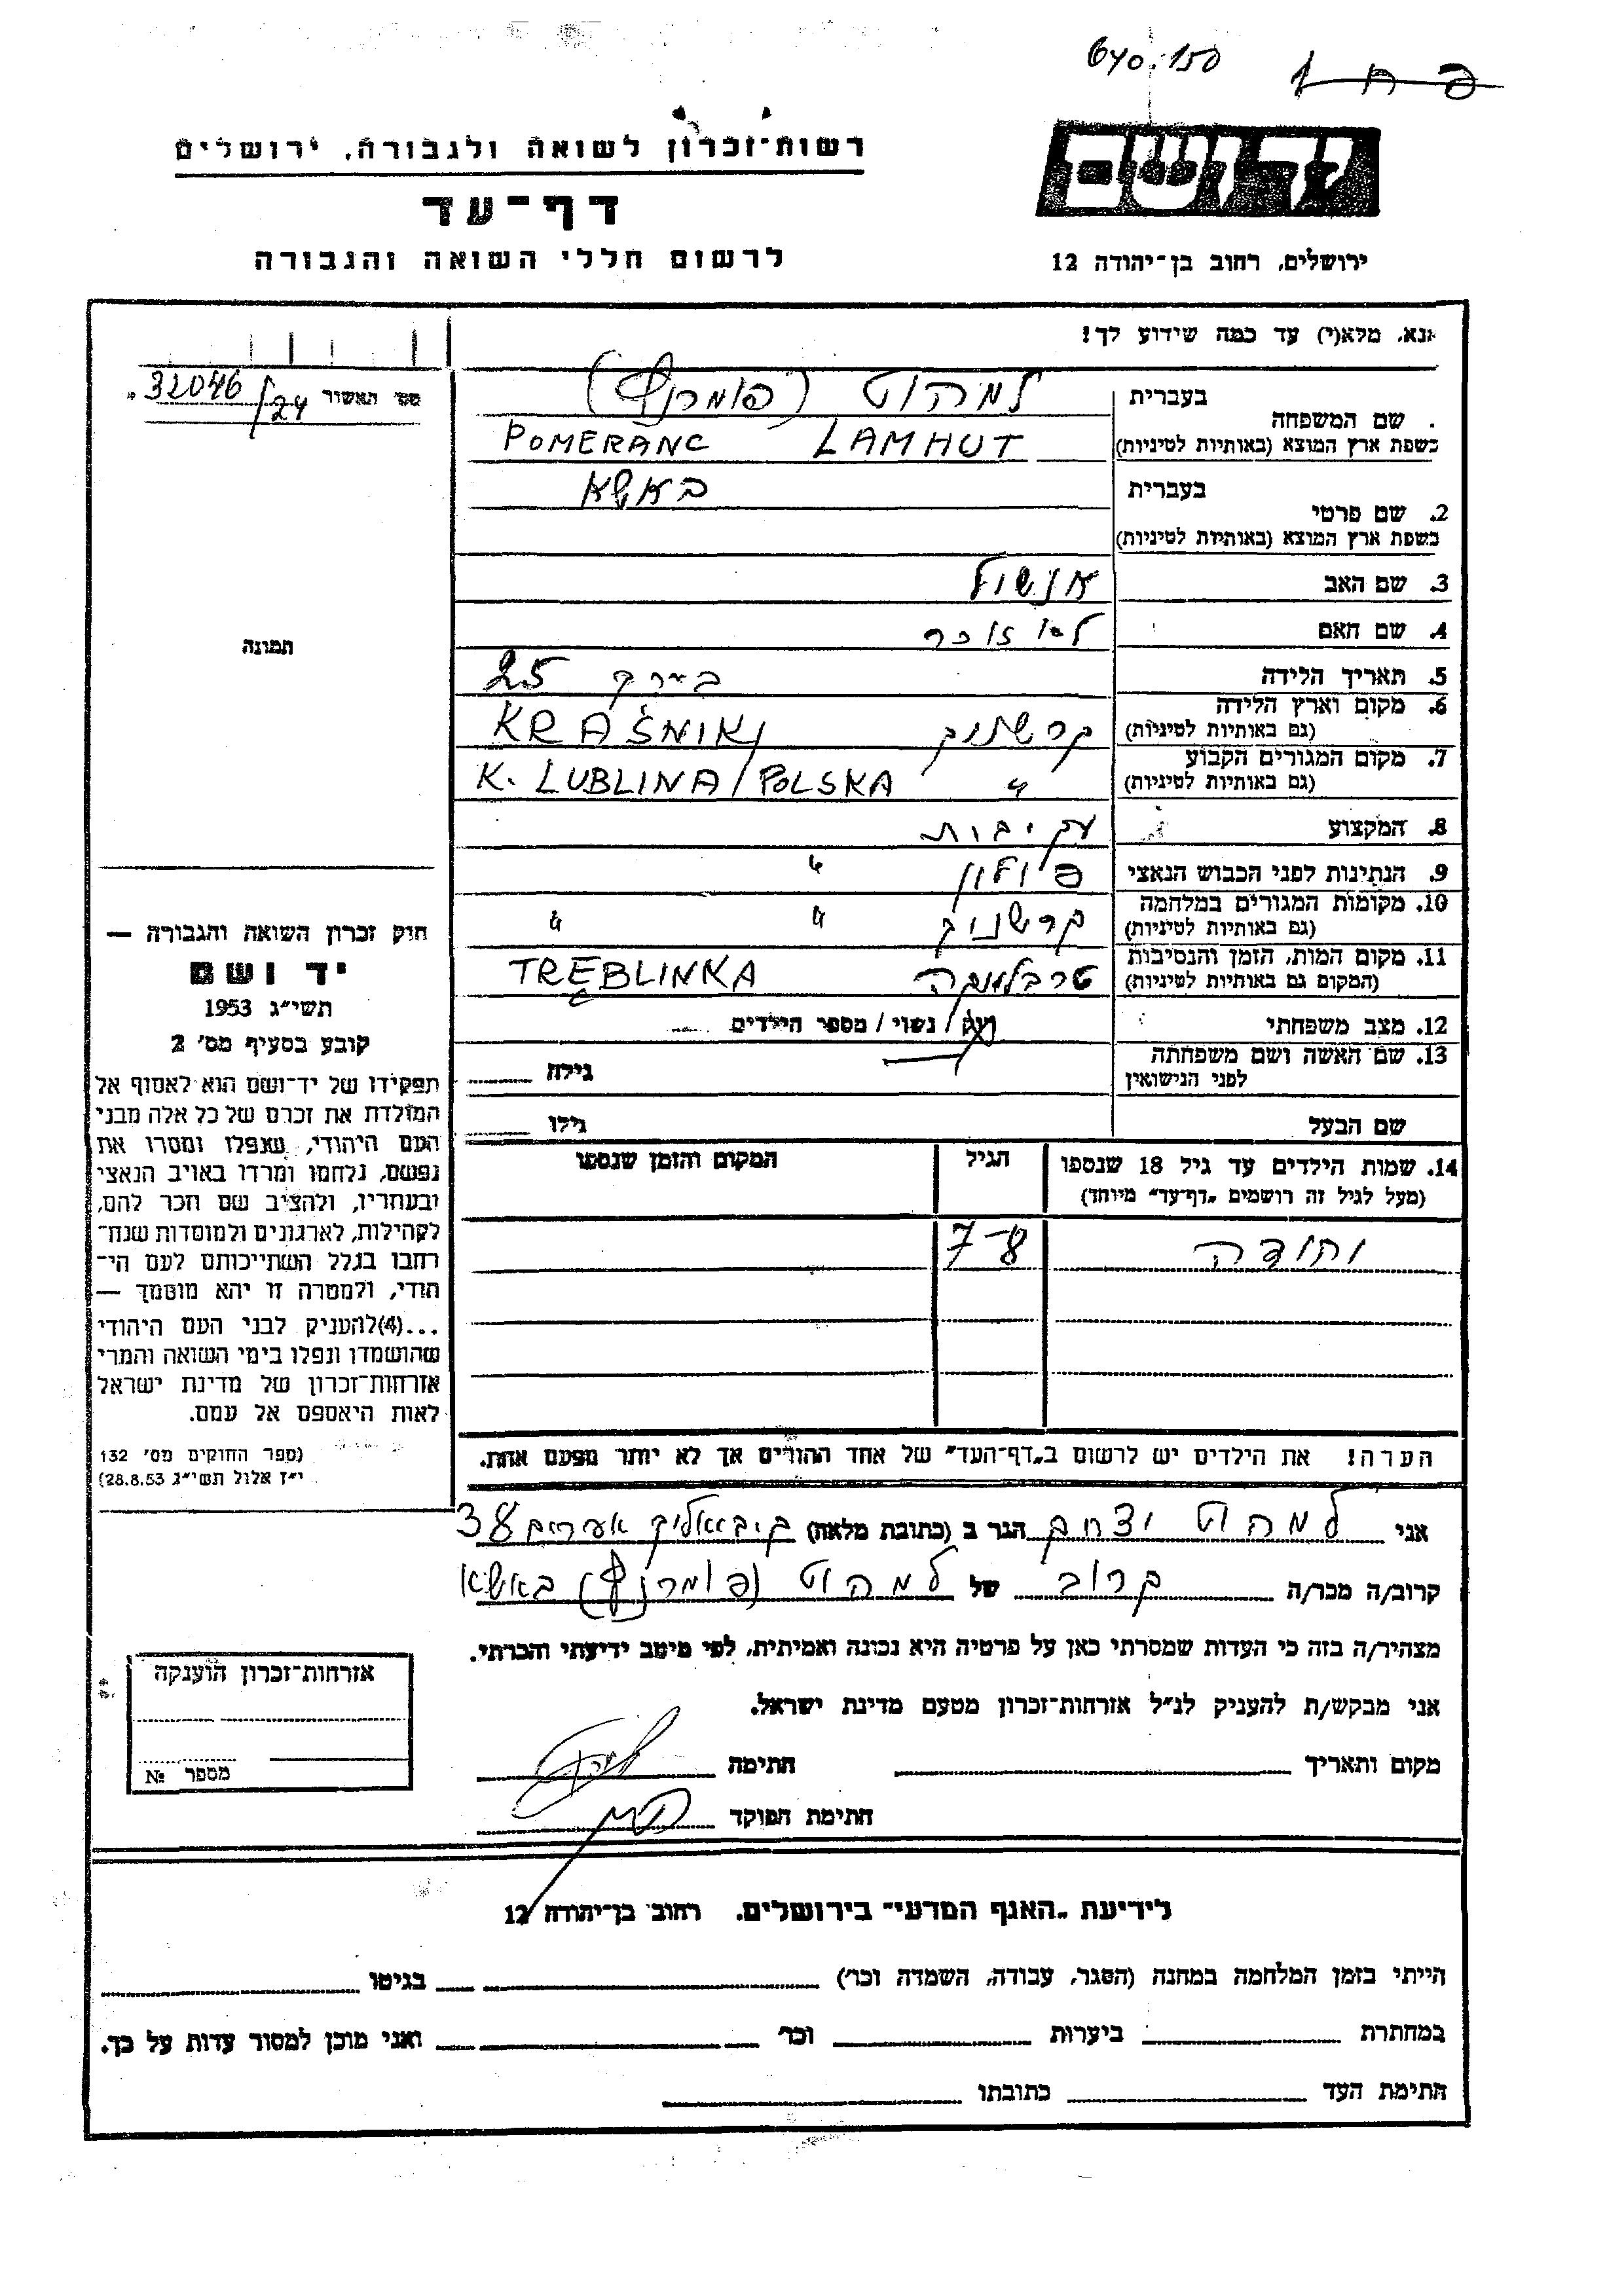 640.150
רשות־זכרון לשואה ולגבורה, ירושלים
דף־עד
לרשום חללי השואה והגבורה
ידושם
ירושלים, רחוב בן־יהודה 12
אנא, מלא(י) עד כמה שידוע לך!
32046/24
שם המשפחה
בעברית למהוט (פומרנץ)
בשפת ארץ המוצא (באותיות לטיניות) POMERANC LAMHUT
2. שם פרטי
בעברית באשא
בשפת ארץ המוצא (באותיות לטיניות)
3. שם האב אנשול
4. שם האם לא זוכר
5. תאריך הלידה 25
6. מקום וארץ הלידה (גם באותיות לטיניות) קרשניק KRAŚNIK
7. מקום המגורים הקבוע (גם באותיות לטיניות) " K. LUBLINA / POLSKA
8. המקצוע
9. הנתינות לפני הכבוש הנאצי פולין "
10. מקומות המגורים במלחמה (גם באותיות לטיניות) קרשניק " "
11. מקום המות, הזמן והנסיבות (המקום גם באותיות לטיניות) טרבלינקה TREBLINKA
12. מצב משפחתי רוק / נשוי / מספר הילדים
13. שם האשה ושם משפחתה לפני הנישואין גילה
שם הבעל גילו
14. שמות הילדים עד גיל 18 שנספו (מעל לגיל זה רושמים "דף־עד" מיוחד) הגיל המקום והזמן שנספו
יהודה 7-8
הערה! את הילדים יש לרשום ב"דף־העד" של אחד ההורים אך לא יותר מפעם אחת.
תמונה
חוק זכרון השואה והגבורה —
יד ושם
תשי״ג 1953
קובע בסעיף מס׳ 2
תפקידו של יד־ושם הוא לאסוף אל
המולדת את זכרם של כל אלה מבני
העם היהודי, שנפלו ומסרו את
נפשם, נלחמו ומרדו באויב הנאצי
ובעוזריו, ולהציב שם וזכר להם,
לקהילות, לארגונים ולמוסדות שנח־
רבו בגלל השתייכותם לעם הי־
הודי, ולמטרה זו יהא מוסמך —
...(4)להעניק לבני העם היהודי
שהושמדו ונפלו בימי השואה והמרי
אזרחות־זכרון של מדינת ישראל
לאות היאספם אל עמם.
(ספר החוקים מס׳ 132
י״ז אלול תשי״ג 28.8.53)
אני למהוט יצחק הגר ב (כתובת מלאה) ק.ביאליק אפרים 38
קרוב/ה מכר/ה קרוב של למהוט (פומרנץ) באשא
מצהיר/ה בזה כי העדות שמסרתי כאן על פרטיה היא נכונה ואמיתית, לפי מיטב ידיעתי והכרתי.
אני מבקש/ת להעניק לנ״ל אזרחות־זכרון מטעם מדינת ישראל.
מקום ותאריך חתימה
חתימת הפוקד
אזרחות־זכרון הוענקה
מספר №
לידיעת "האגף המדעי" בירושלים, רחוב בן־יהודה 12
הייתי בזמן המלחמה במחנה (הסגר, עבודה, השמדה וכו׳) בגיטו
במחתרת ביערות וכו׳ ואני מוכן למסור עדות על כך.
חתימת העד כתובתו